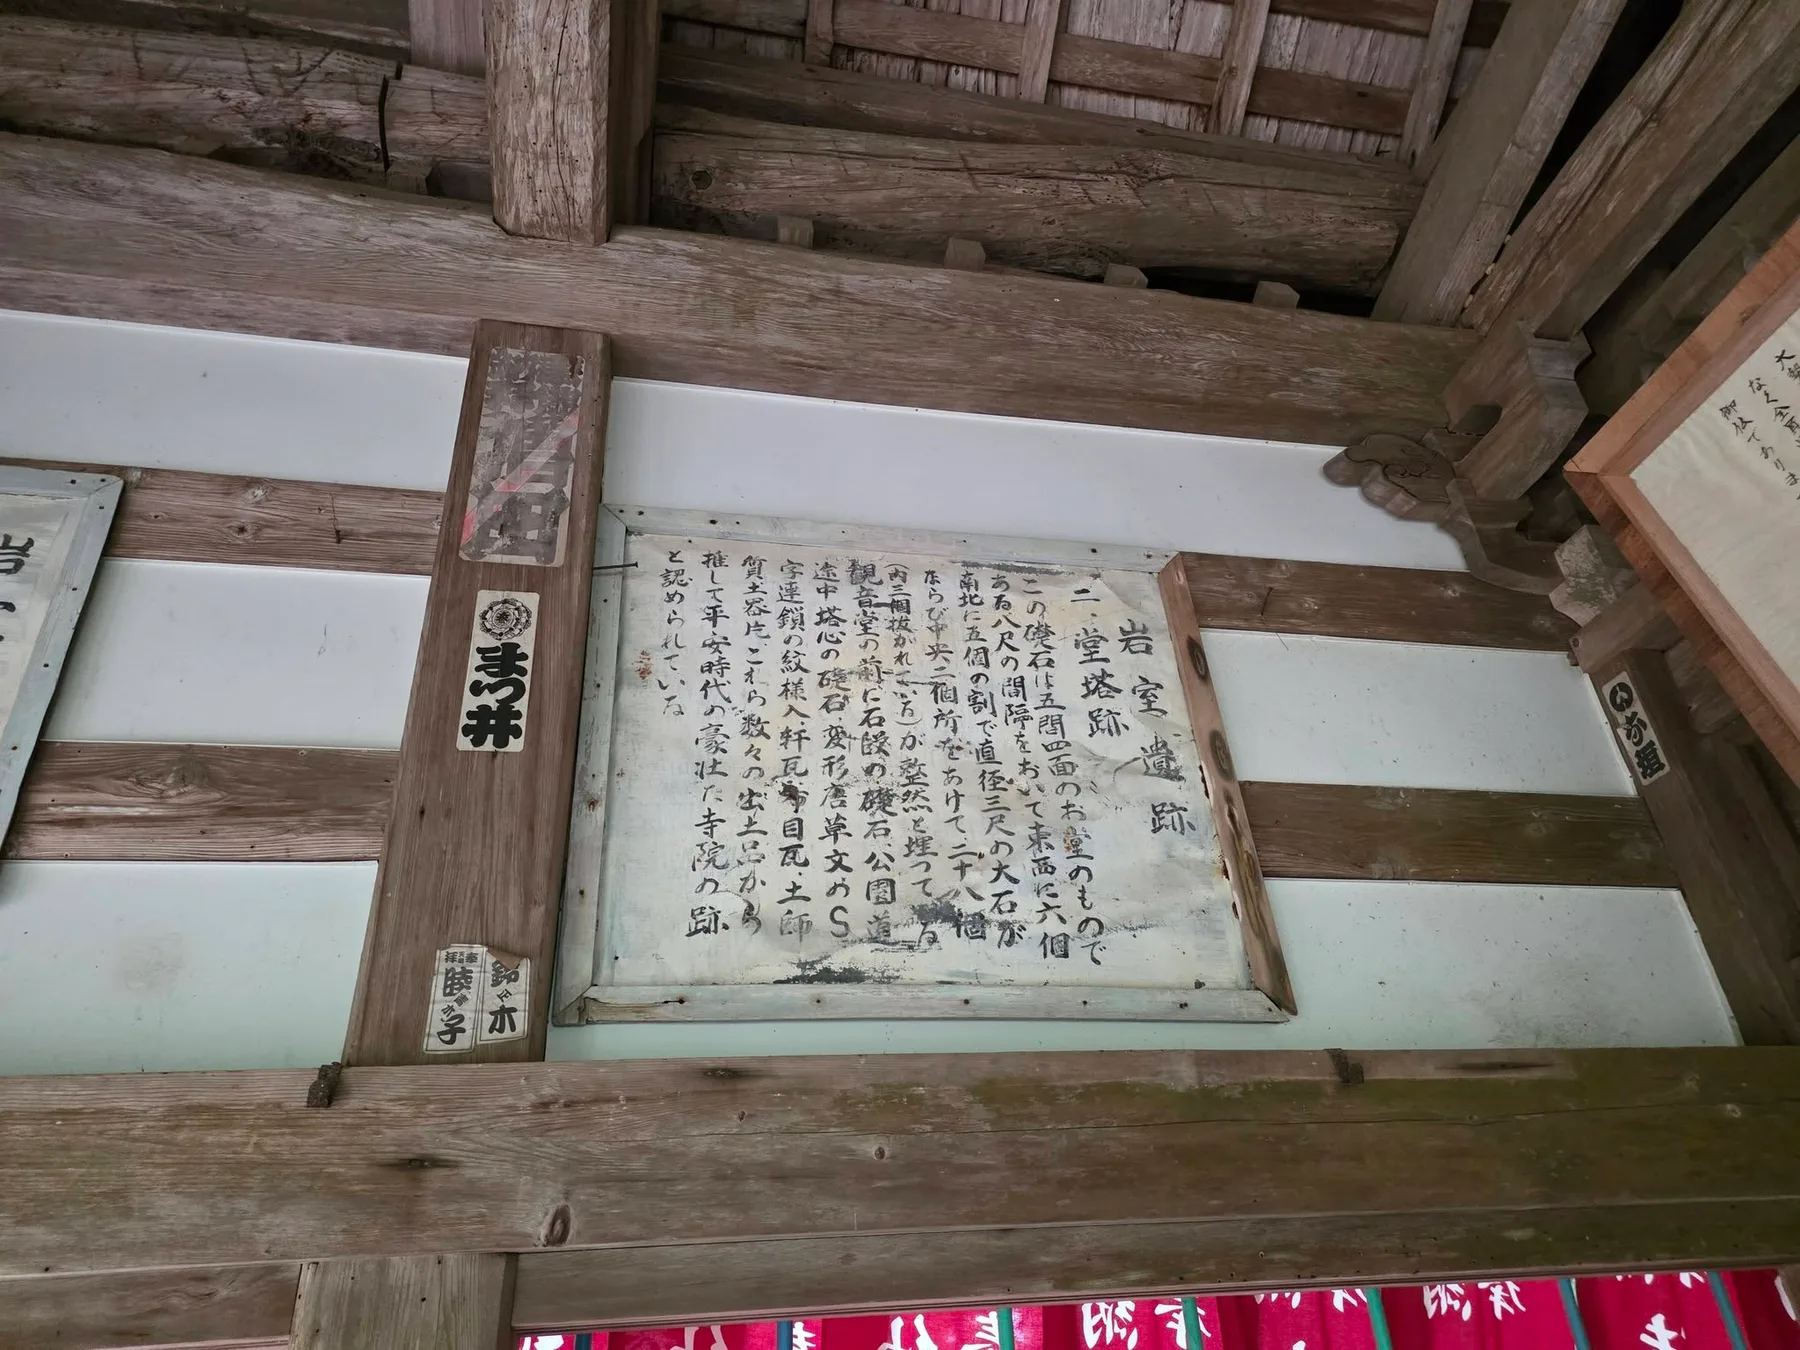 岩室遺跡
二、堂塔跡
この礎石は五間四面のお堂のもので
ある八尺の間隔をおいて東西に六個
南北に五個の割で直径三尺の大石が
ならび中央二個所をあけて二十八個
(内三個抜かれている)が整然と埋つてゐる
観音堂の前に石段の礎石、公園道
途中塔心の礎石、変形唐草文のS
字連鎖の紋様入軒瓦、布目瓦、土師
質土器片、これら数々の出土品から
推して平安時代の豪壮な寺院の跡
と認められている
まつ井
鈴木
奉拝
睦
子
なく全員
御仏であります
奉納